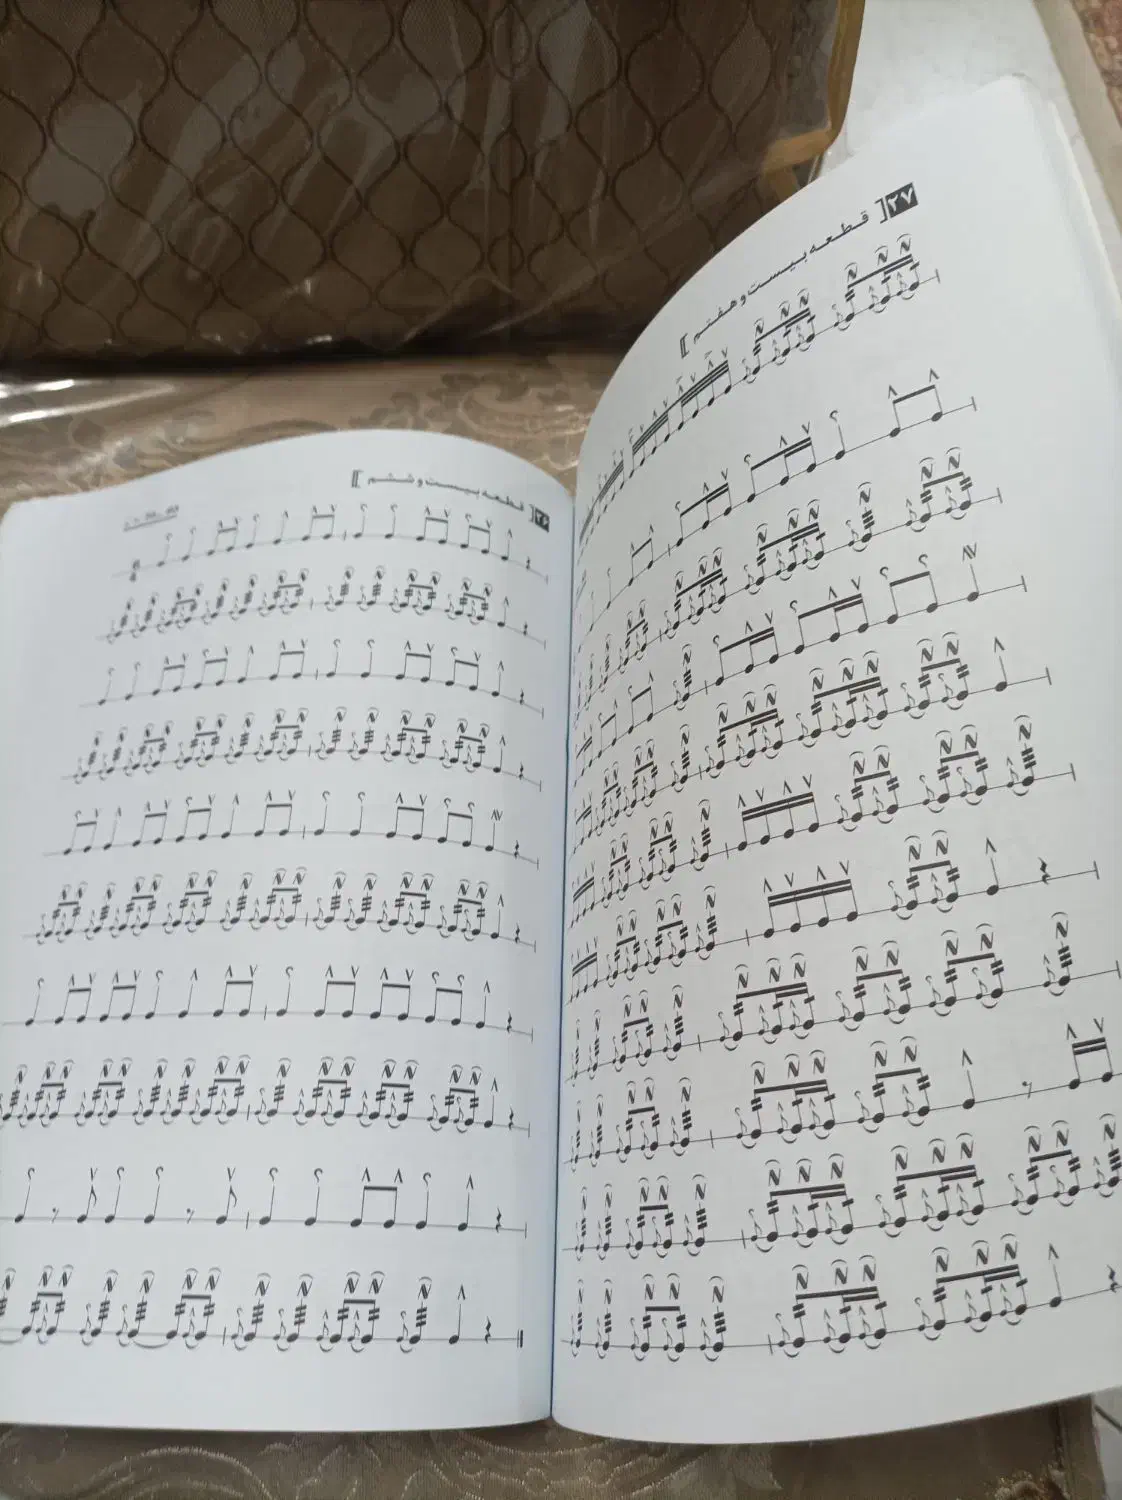 ۲۶ [ قطعه بیست و ششم ]
۲۷ [ قطعه بیست و هفتم ]